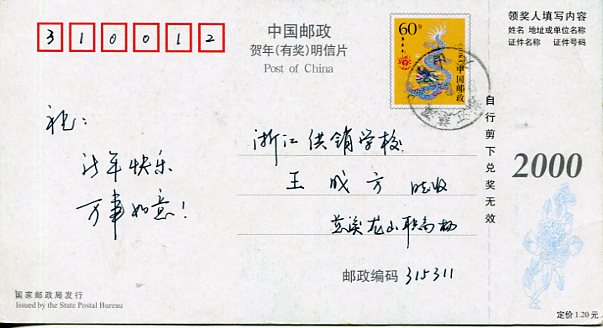 310012
中国邮政
贺年(有奖)明信片
Post of China
60分
中国邮政
领奖人填写内容
姓名 地址或单位名称
证件名称 证件号码
自行剪下兑奖无效
2000
祝：
新年快乐
万事如意！
浙江供销学校
王成方 收
慈溪龙山职高杨
邮政编码 315311
国家邮政局发行
Issued by the State Postal Bureau
定价1.20元